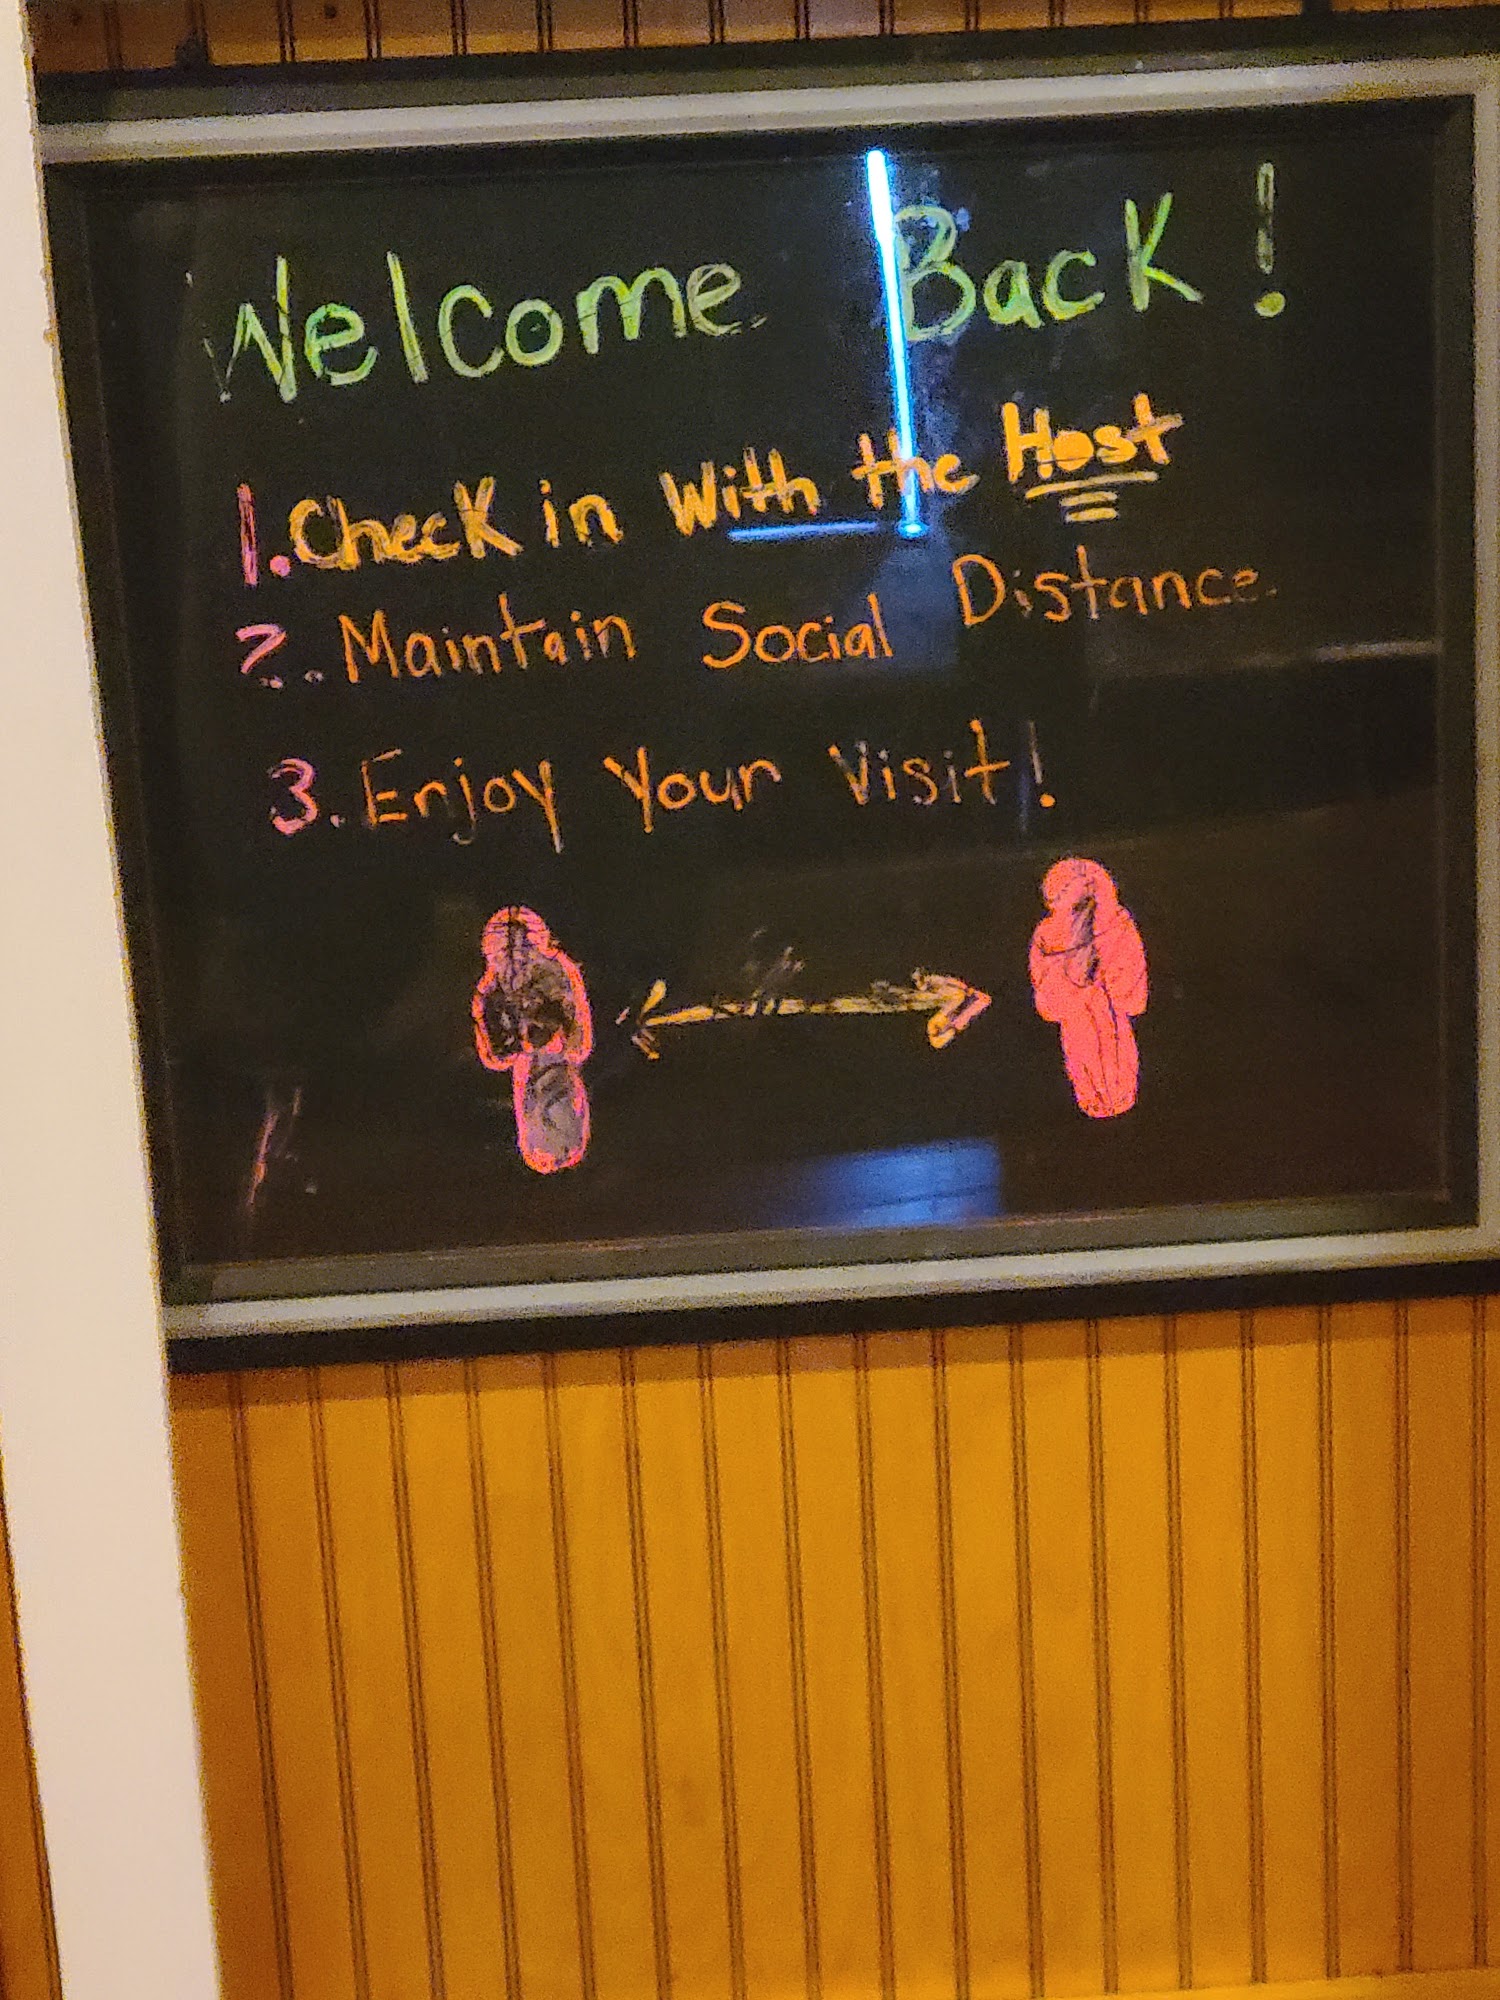 Welcome Back!
1. Check in With the Host
2. Maintain Social Distance.
3. Enjoy Your Visit!